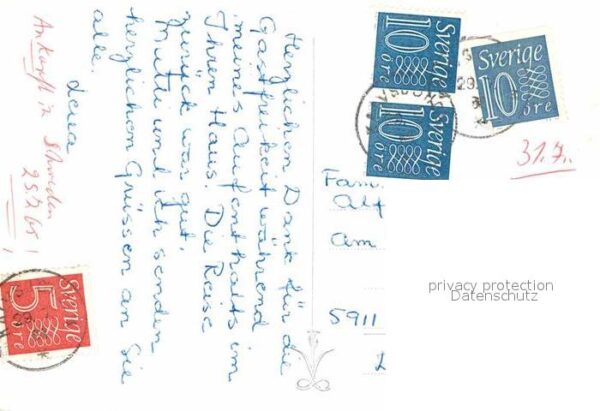 Herzlichen Dank für die
Gastfreiheit während
meines Aufenthalts im
Ihren Haus. Die Reise
zurück war gut.
Mutti und ich senden
herzlichen Grüssen an Sie
alle.
Lena
Ankunft in Schweden
25.7.65!
Sverige
10
öre
Sverige
10
öre
Sverige
10
öre
Sverige
5
öre
31.7.
Fam.
Alf
am
5911
privacy protection
Datenschutz